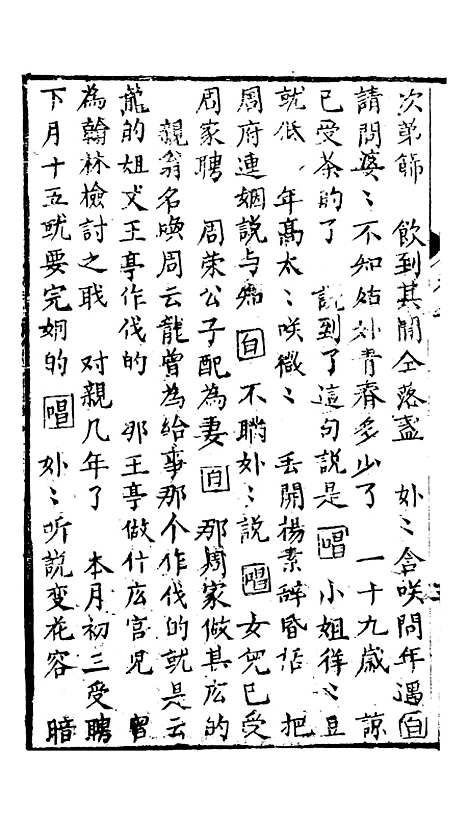 次第篩　飲到其間仝落盞　外〻含咲問年遇白
請問婆〻不知姑外青春多少了　一十九歲　諒
已受茶的了　說到了這句說是唱　小姐徉〻豆
就低　年高太〻咲微〻　丢開楊素辞昏恬　把
周府連姻說与知白　不聃外〻說唱　女兒已受
周家聘　周荣公子配為妻白　那周家做其庅的
親翁名喚周云龍曾為給事那个作伐的就是云
龍的姐丈王亭作伐的　那王亭做什庅官児　曽
為翰林檢討之耿　对親几年了　本月初三受聘
下月十五就要完姻的唱　外〻听説变花容　暗